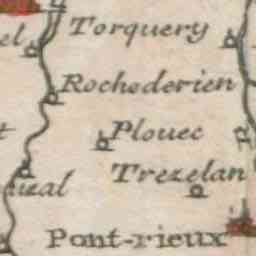 el Torquery
Rochederien
Plouec
Trezelan
uzal
Pont-rieux